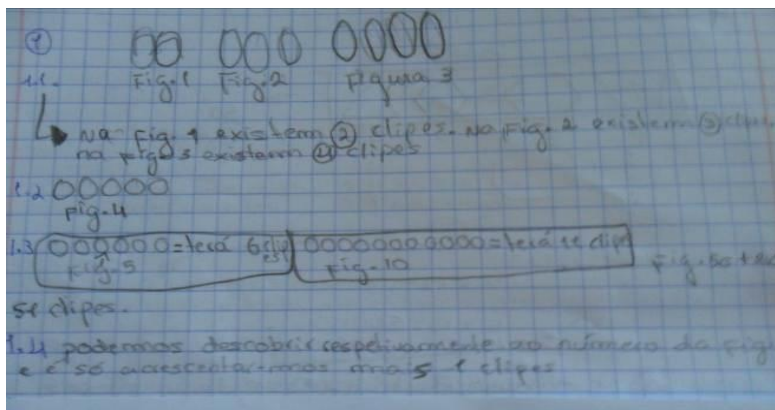 1
1.1. Fig.1 Fig.2 Figura 3
Na Fig. 1 existem 2 clipes. Na Fig. 2 existem 3 clipes
na Fig. 3 existem 4 clipes
1.2 OOOOO
Fig.4
1.3 OOOOOO = terá 6 clipes OOOOOOOOOOO = terá 11 clipes
Fig.5 Fig.10 Fig.50
51 clipes.
1.4 podemos descobrir respetivamente ao número da fig
e é só acrescentarmos mais 1 clipes